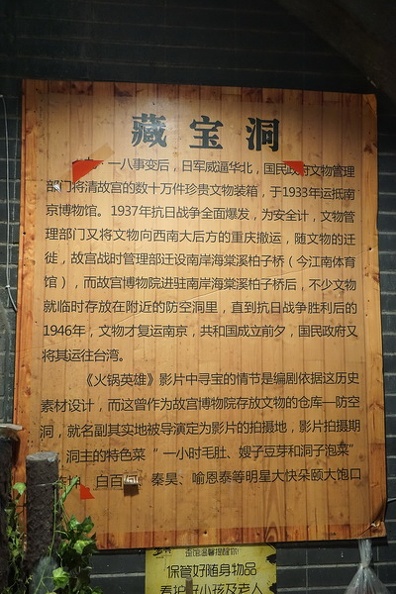 藏宝洞
一八事变后，日军威逼华北，国民政府文物管理
部门将清故宫的数十万件珍贵文物装箱，于1933年运抵南
京博物馆。1937年抗日战争全面爆发，为安全计，文物管
理部门又将文物向西南大后方的重庆撤运，随文物的迁
徙，故宫战时管理部迁设南岸海棠溪柏子桥（今江南体育
馆），而故宫博物院进驻南岸海棠溪柏子桥后，不少文物
就临时存放在附近的防空洞里，直到抗日战争胜利后的
1946年，文物才复运南京，共和国成立前夕，国民政府又
将其运往台湾。
《火锅英雄》影片中寻宝的情节是编剧依据这历史
素材设计，而这曾作为故宫博物院存放文物的仓库—防空
洞，就名副其实地被导演定为影片的拍摄地，影片拍摄期
，洞主的特色菜“一小时毛肚、嫂子豆芽和洞子泡菜”
白百 秦昊、喻恩泰等明星大快朵颐大饱口
温馨提醒你
保管好随身物品
看护好小孩及老人